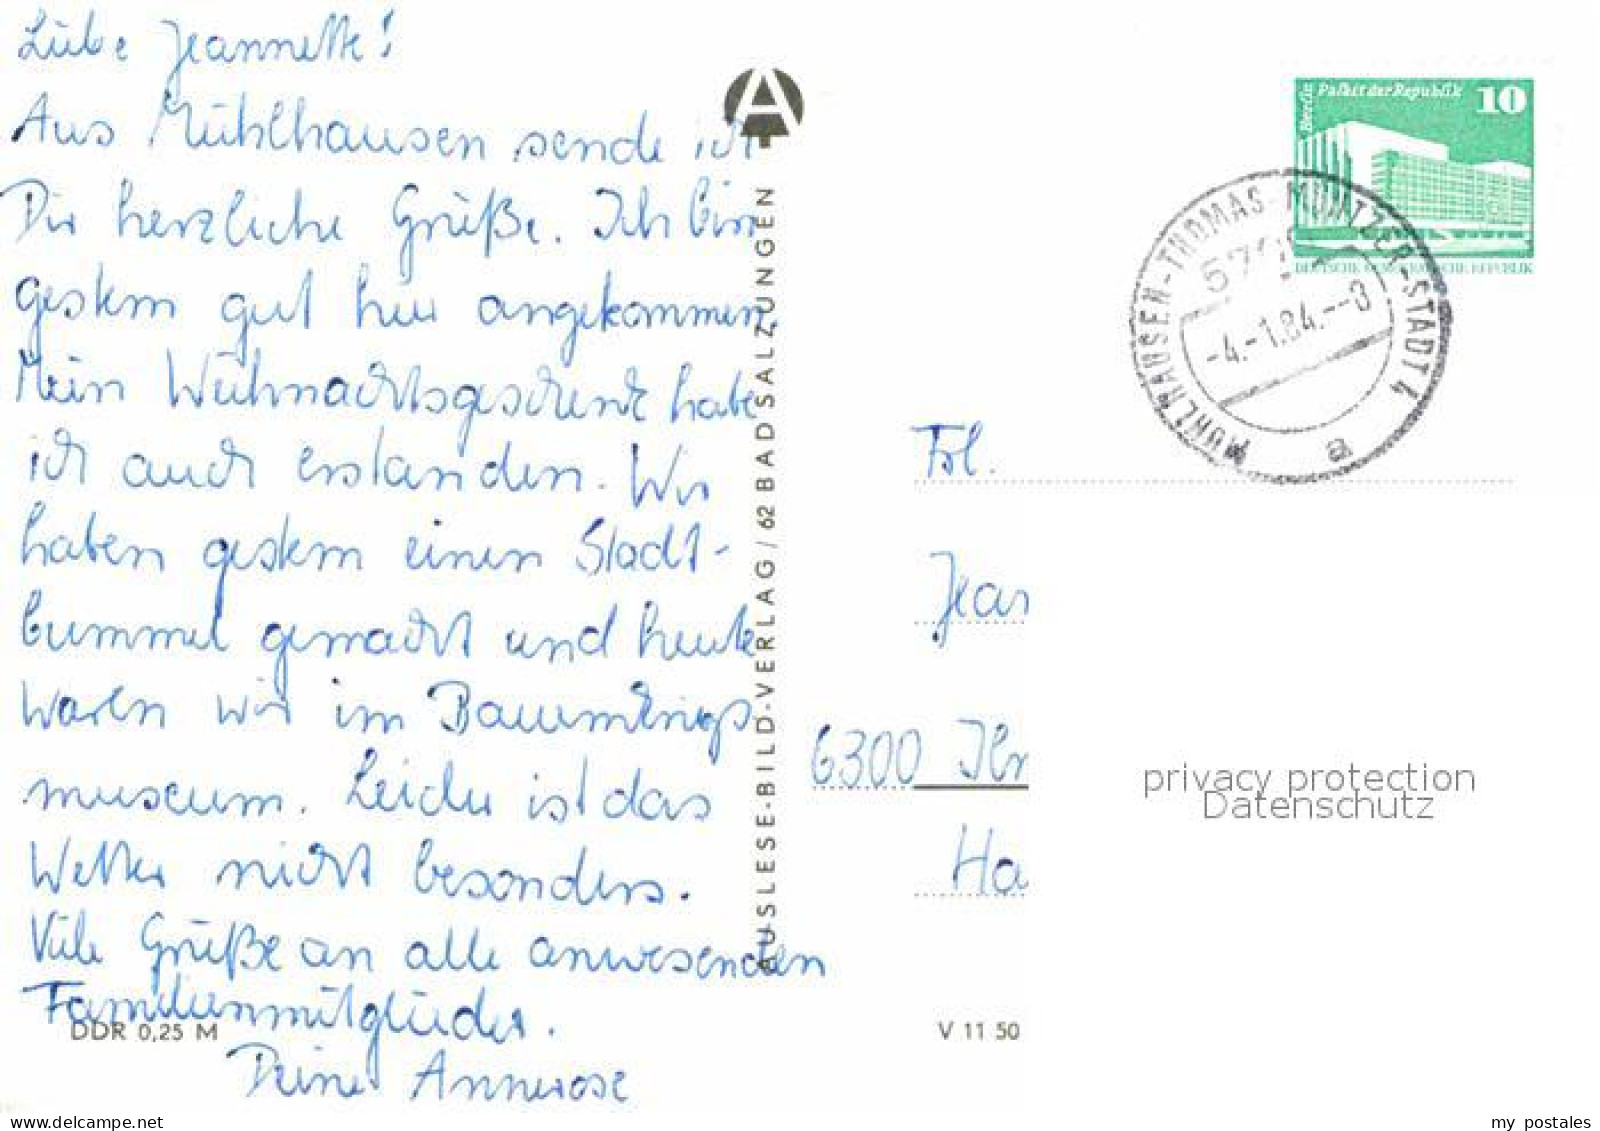 Liebe Jeannette!
Aus Mühlhausen sende ich
Dir herzliche Grüße. Ich bin
gestern gut hier angekommen.
Mein Weihnachtsgeschenk habe
ich auch erstanden. Wir
haben gestern einen Stadt-
bummel gemacht und heute
waren wir im
museum. Leider ist das
Wetter nicht besonders.
Viele Grüße an alle anwesenden
Familienmitglieder.
Deine Annerose
DDR 0,25 M
A
AUSLESE-BILD-VERLAG/62 BAD SALZUNGEN
Berlin Palast der Republik 10
DEUTSCHE DEMOKRATISCHE REPUBLIK
MÜHLHAUSEN-THOMAS-MÜNTZER-STADT 4
-4.-1.84.--3
a
Frl.
Jean
6300 Ilm
Ha
V 11 50
privacy protection
Datenschutz
my postales